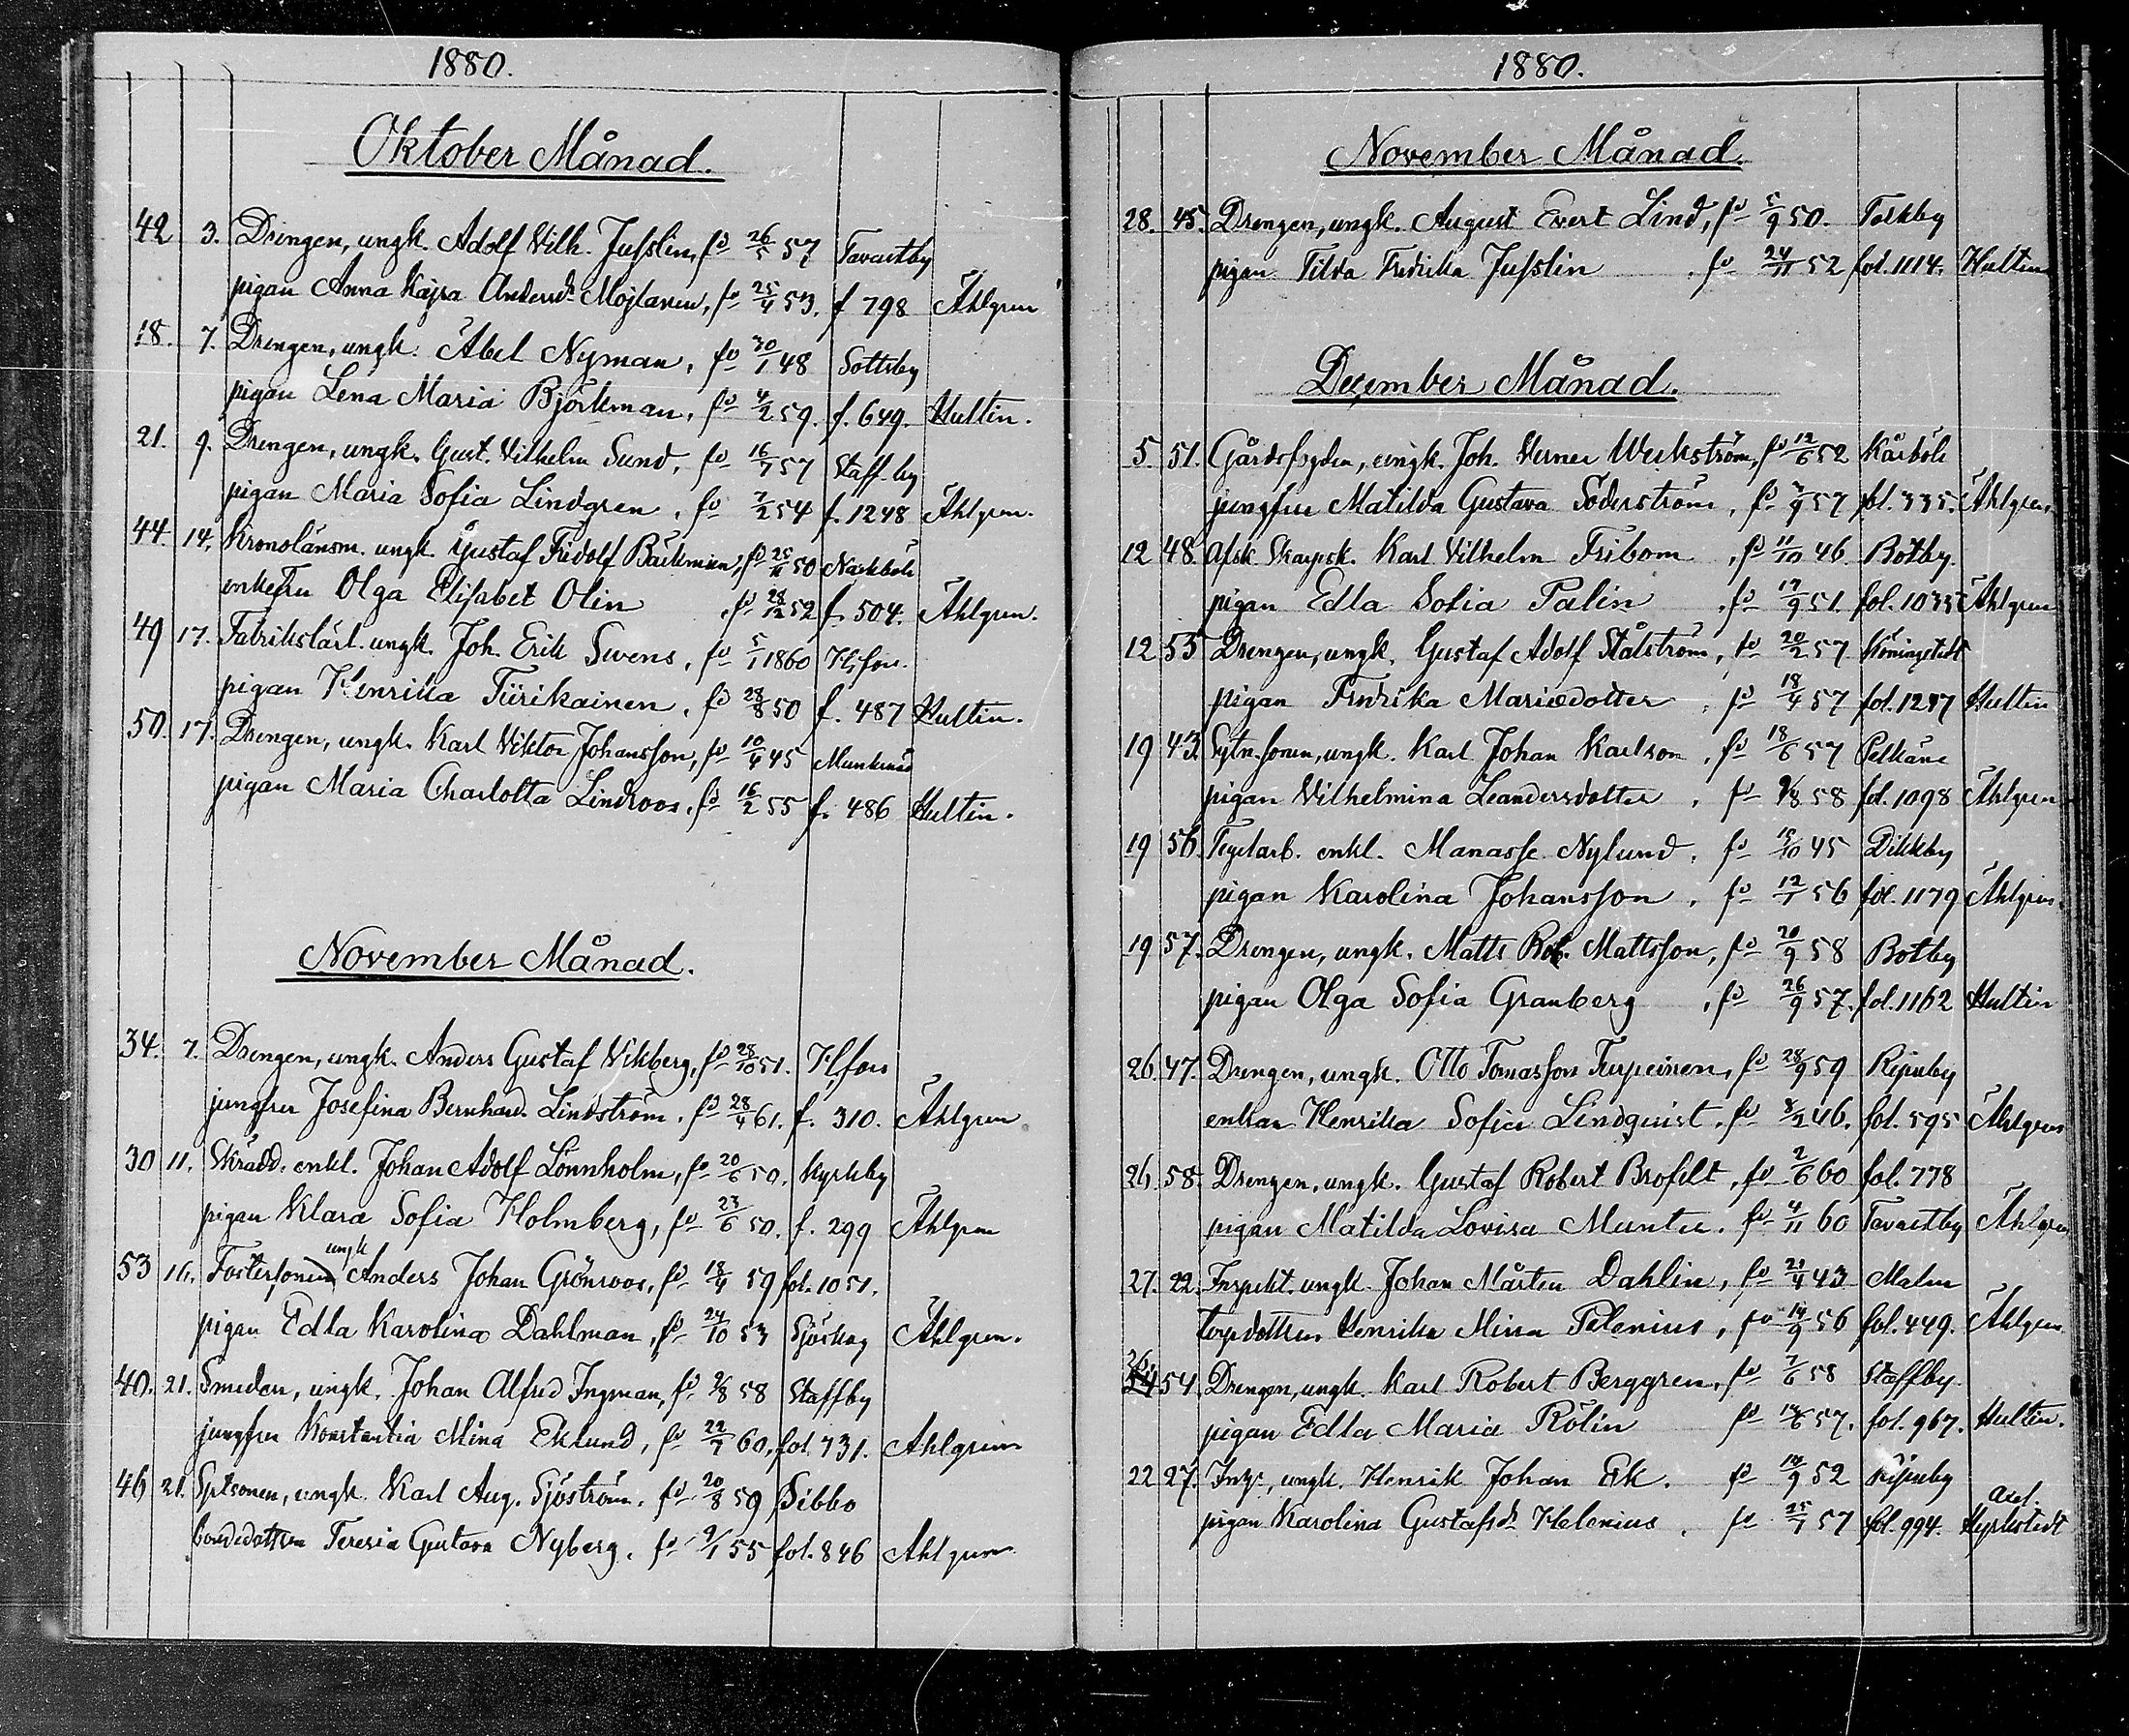 1880.
Oktober Månad.
42 3. Drengen, ungk. Adolf Vilh. Jusslin, fd 26/5 57 Tavastby
pigan Anna Kajsa Andersd. Mojlanen, fd 25/4 53. f 798 Åhlgren
18. 7. Drengen, ungk. Abel Nyman, fd 30/1 48 Sottsby
pigan Lena Maria Björkman, fd 4/2 59. f. 649. Hultin.
21. 9. Drengen, ungk. Gust. Vilhelm Sund, fd 16/7 57 Staff-by
pigan Maria Sofia Lindgren, fd 7/2 54 f. 1248 Åhlgren.
44. 14. Kronolänsm. ungk. Gustaf Fridolf Bäckman, fd 25/11 50 Nackböle
enkefru Olga Elisabet Olin, fd 28/12 52 f. 504. Åhlgren.
49 17. Fabrikskarl. ungk. Joh. Erik Svens, fd 5/1 1860 H:fors.
pigan Henrika Tiirikainen, fd 28/8 50 f. 487 Hultin.
50. 17. Drengen, ungk. Karl Viktor Johansson, fd 10/4 45 Munknäs
pigan Maria Charlotta Lindroos, fd 16/2 55 f. 486 Hultin.
November Månad.
34. 7. Drengen, ungk. Anders Gustaf Vikberg, fd 28/10 51. H:fors
jungfru Josefina Bernhard. Lindström, fd 28/4 61. f. 310. Åhlgren
30 11. Skrädd. enkl. Johan Adolf Lönnholm, fd 20/6 50. Kyrkby
pigan Klara Sofia Holmberg, fd 23/6 50. f. 299 Åhlgren
ungk
53 16. Fostersonen Anders Johan Grönroos, fd 18/4 59 fol. 1051.
pigan Edla Karolina Dahlman, fd 24/10 53 Sjöskog Åhlgren.
40. 21. Smeden, ungk. Johan Alfred Ingman, fd 2/8 58 Staffby
jungfru Konstantia Mina Eklund, fd 22/7 60, fol. 731. Ahlgren
46 21. Sytsonen, ungk. Karl Aug. Sjöström, fd 20/8 59 Sibbo
bondedottren Teresia Gustava Nyberg, fd 9/1 55 fol. 846 Ahlgren
1880.
November Månad.
28. 45. Drengen, ungk. August Evert Lind, fd 5/9 50. Toskby
pigan Tilda Fredrika Jusslin, fd 24/11 52 fol. 1114. Hultin
December Månad.
5. 51. Gårdsfogden, ungk. Joh. Verner Weckström, fd 12/6 52 Kårböle
jungfru Matilda Gustava Söderström, fd 3/9 57 fol. 335. Åhlgren,
12 48. Afsk. Skarpsk. Karl Vilhelm Fribom, fd 11/10 46. Botby.
pigan Edla Sofia Palin, fd 17/9 51. fol. 1035 Åhlgren
12 55 Drengen, ungk. Gustaf Adolf Stålström, fd 20/2 57. Köningstedt
pigan Fredrika Mariædotter, fd 18/4 57 fol. 1287 Hultin
19 43. Sytn. sonen, ungk. Karl Johan Karlson, fd 18/6 57 Pelkäne
pigan Vilhelmina Leandersdotter, fd 9/8 58 fol. 1098 Åhlgren
19 56. Tegelarb. enkl. Manasse Nylund, fd 15/10 45 Dikkby
pigan Karolina Johansson, fd 12/1 56 fol. 1179 Åhlgren.
19 57. Drengen, ungk. Matts Rob. Mattsson, fd 20/9 58 Botby
pigan Olga Sofia Granberg, fd 26/9 57. fol. 1162 Hultin
26. 47. Drengen, ungk. Otto Tomasson Turpeinen, fd 28/9 59 Ripuby
enkan Henrika Sofia Lindqvist, fd 8/2 46. fol. 595 Åhlgren
26. 58. Drengen, ungk. Gustaf Robert Brofelt, fd 2/6 60 fol. 778
pigan Matilda Lovisa Munter, fd 4/11 60 Tavastby Åhlgren
27. 22. Inspekt. ungk. Johan Mårten Dahlin, fd 21/4 43 Malm
torpdottren Henrika Mina Pelenius, fd 14/9 56 fol. 449. Åhlgren.
26. 54. Drengen, ungk. Karl Robert Berggren, fd 7/6 58 Staffby.
pigan Edla Maria Rölin fd 14/6 57. fol. 967. Hultin.
22 27. Inhs., ungk. Henrik Johan Ek. fd 14/9 52 Ripuby
pigan Karolina Gustafsd. Helenius, fd 25/7 57 fol. 994. Axel. Kyrkstedt